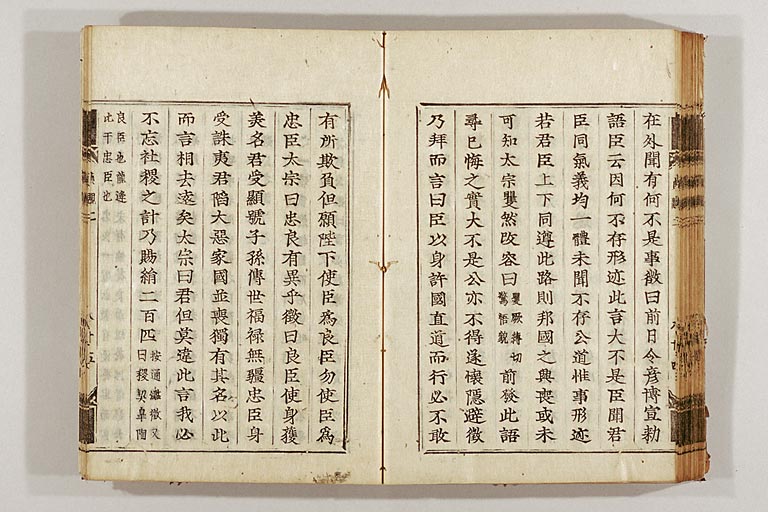 在外聞有何不是事徵曰前日令彥博宣勑
語臣云因何不存形迹此言大不是臣聞君
臣同氣義均一體未聞不存公道惟事形迹
若君臣上下同遵此路則邦國之興喪或未
可知太宗矍然改容曰矍厥縛切驚悟貌前發此語
尋已悔之實大不是公亦不得遂懷隱避徵
乃拜而言曰臣以身許國直道而行必不敢
有所欺負但願陛下使臣為良臣勿使臣為
忠臣太宗曰忠良有異乎徵曰良臣使身獲
美名君受顯號子孫傳世福祿無疆忠臣身
受誅夷君陷大惡家國並喪獨有其名以此
而言相去遠矣太宗曰君但莫違此言我必
不忘社稷之計乃賜絹二百匹按通鑑徵又曰稷契皐陶
良臣也龍逄比干忠臣也